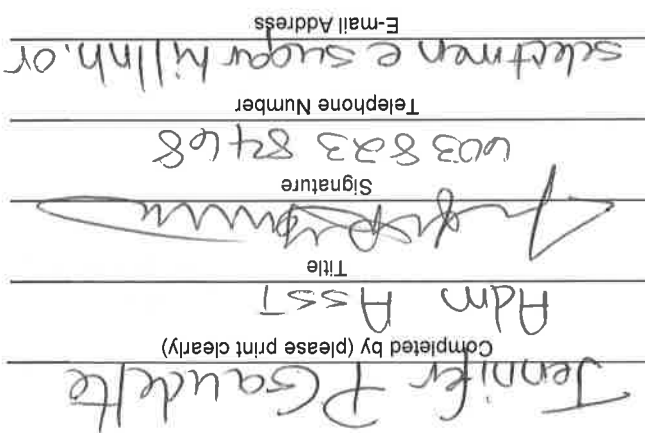 Jennifer P Gaudette
Completed by (please print clearly)
Adm Asst
Title
Signature
603 823 8468
Telephone Number
selectmen@sugarhillnh.or
E-mail Address